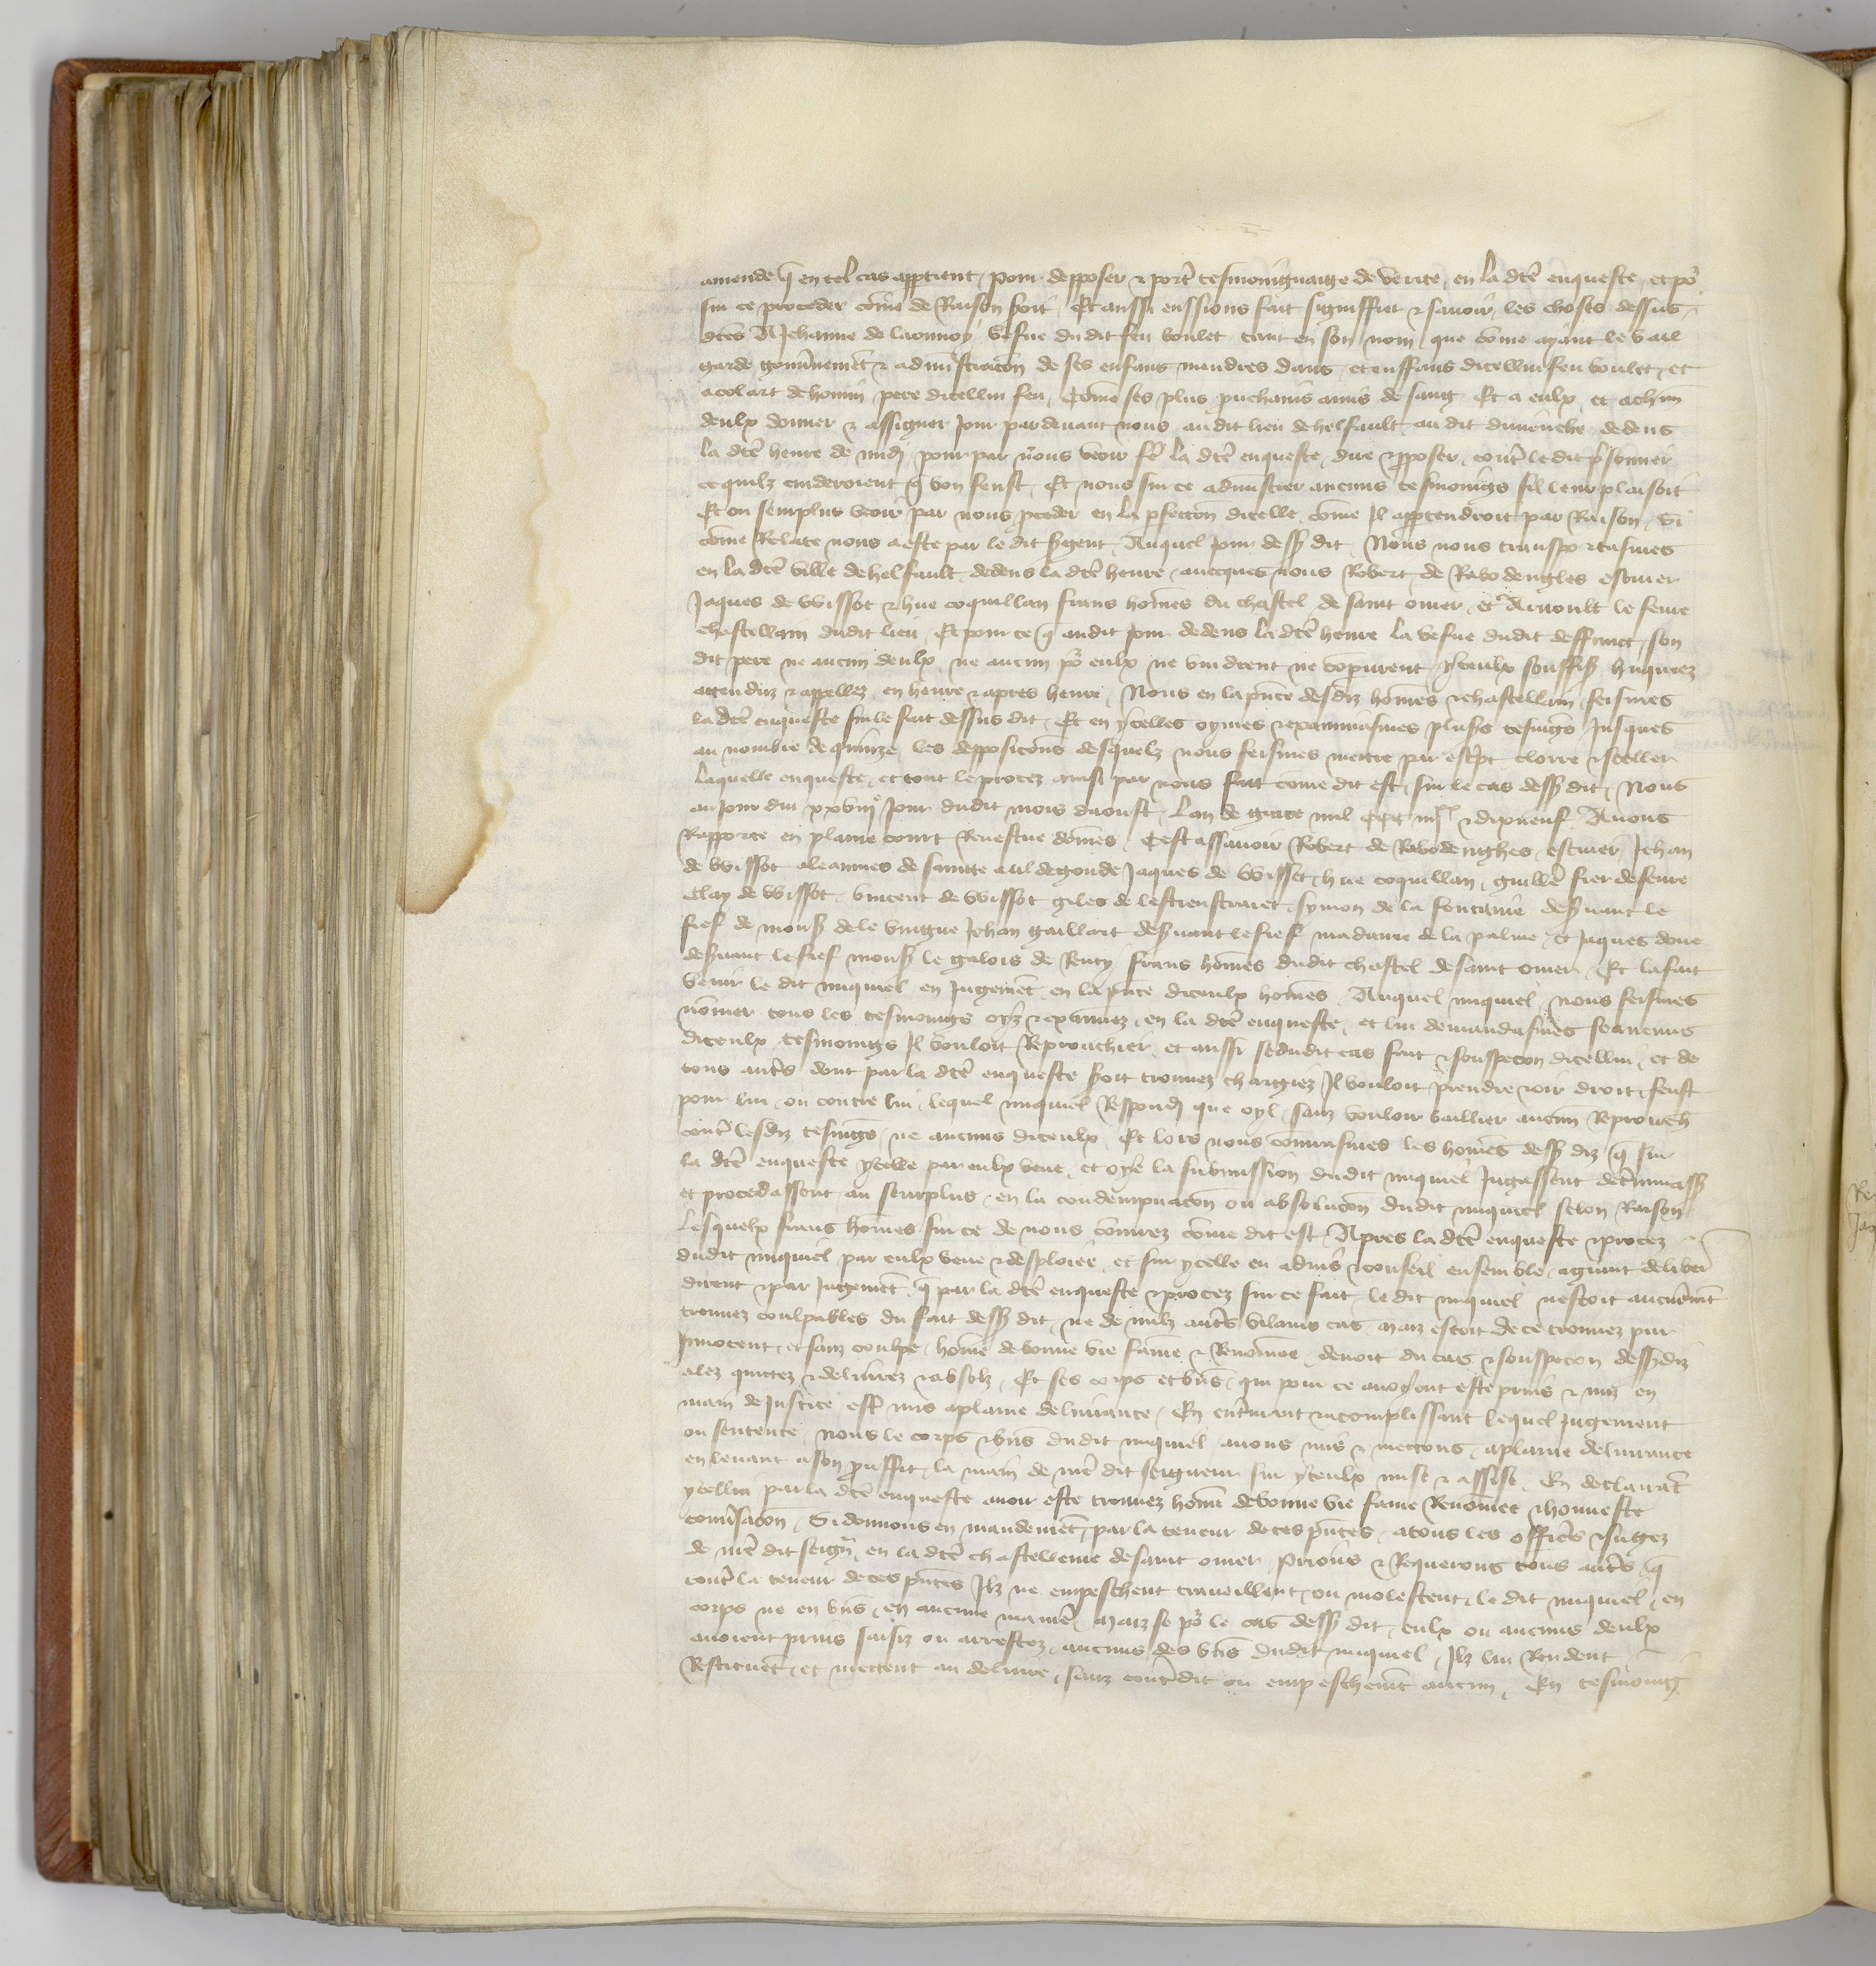 amende q̄ en tel cas apptient pour depposer & port̄ tesmoingnaige de verite en la dcē enqueste et po
sur ce proceder cōme de Raison soit Et aussi eussions fait signiffier & savoir les choses dessus
dc̄es A Jehanne de Launnoy vefue du dit feu boulet tant en son nom que cōme ayant le bail
garde gouv̄nemēt & admīstracōn de ses enfans maindres dans et enffans dicellui feu boulet et
a colart de homin pere dicellui feu Cōme ses plus prochains amis de sang Et a eulx et a ch̄un
deulx donner & assigner jour par devant nous au dit lieu de helfault au dit dimenche dedens
la dcē heure de midy pour par nous veoir fē la dcē enqueste dire & pposer cont̄ le dit p̄sonnier
ce quilz cuideroient q̄ bon feust Et nous sur ce admīstrer aucuns tesmoings sil leur plaisoit
Et ou seurplus veoir par nous pceder en la pfection dicelle cōme Il apptendroit par Raison Si
cōme Relate nous a este par le dit sergent Auquel jour dess dit Nous nous transportasmes
en la dcē ville de helfault dedens la dcē heure avecques nous Robert de Rabodengles escuier
Jaques de Wissot & hue coquillan frans hōmes du chastel de saint omer et Arnoult le feure
chastellain dudit lieu Et pour ce q̄ audit jour dedens la dcē heure la vefue dudit deffunct son
dit pere ne aucun deulx ne aucun po eulx ne vindrent ne cōpurent yceulx souffis huquiez
attenduz & appellez en heure & apres heure Nous en la p̄nce desdiz hōmes & chastellain feismes
la dcē enqueste sur le fait dessus dit Et en ycelles oymes & examinasmes plus̄s tesmgs Jusques
au nombre de quinze les depposicōns desquelz nous feismes mettre par esc̄pt clorre & sceller
Laquelle enqueste et tout le procez ainsi par nous fait cōme dit est sur le cas dess dit Nous
au jour dui xxviije jour dudit mois daoust Lan de grace mil CCC iiijxx & dixneuf Avons
Rapporte en plaine court Revestue dōmes Cest assavoir Robert de Rabodenghes escuier Jehan
de Wissot aleaumes de saincte auldegonde Jaques de Wissot hue coquillan guillē fierdefeure
Clay de Wissot vincent de Wissot giles de lestrenstraict symon de la fontaine dess̄vant le
fief de mons de le vingne Jehan gaillart dess̄vant le fief madame de la palme & Jaques doue
dess̄vant le fief mons le galois de Renty frans hōmes dudit chastel de saint omer Et la fait
venir le dit miquiel en Jugemēt en la p̄nce diceulx hōmes Auquel miquiel nous feismes
nōmer tous les tesmoings oyz & exāminez en la dcē enqueste et lui demandasmes se aucuns
diceulx tesmoings Il vouloit Reprouchier et aussi se dudit cas fait & souspecon dicellui et de
tous aut̄s dont par la dcē enqueste soit trouvez chargiez Il vouloit prendre & oir droit feust
pour lui ou contre lui lequel miquiel Respondy que oyl sanz vouloir baillier aucun Reprouch
cont̄ lesdiz tesmgs ne aucuns diceulx Et lors nous conjurasmes les hōmes dess diz q̄ sur
la dcē enqueste ycelle par eulx veue et oye la submission dudit miquiel Jugassent det̄minass
et procedassent au seurplus en la condempnacōn ou absolucōn dudit miquiel selon Raison
Lesquelx frans hōmes sur ce de nous cōjurez cōme dit est Apres la dcē enqueste & procez
dudit miquiel par eulx veue & desploiee et sur ycelle eu advis & conseil ensemble agrant deliber
dirent & par Jugemēt q̄ par la dcē enqueste & procez sur ce fait le dit miquiel nestoit aucunemt
trouvez coulpables du fait dess dit ne de nulz aut̄s vilains cas maiz estoit de ce trouvez pur
Innocent et sanz coulpe hōme de bonne vie fame & Renōmee devoit du cas & souspecon dess diz
alez quittez & delivrez & absolz Et ses corps et bn̄s qui pour ce avoyent este prins & mis en
main de Justice est mis a plaine delivrance En ent̄inant & acomplissant lequel Jugement
ou sentence nous le corps & bn̄s dudit miquiel avons mis & mettons a plaine delivrance
en levant a son prouffit la main de mē dit seigneur sur yceulx mise & assise En declarāt
ycellui par la dcē enqueste avoir este trouvez hōme de bonne vie fame Renōmee & honneste
conv̄sacōn Si donnons en mandemēt par la teneur de ces p̄ntes a tous les offic̄s & sugez
de mē dit seigr en la dcē chastellenie de saint omer prions & Requerons tous aut̄s q̄
cont̄ la teneur de ces p̄ntes Ilz ne empeschent traveillent ou molestent le dit miquiel en
corps ne en bn̄s en aucune maniē maiz se po le cas dess dit eulx ou aucuns deulx
avoient prins saisiz ou arrestez aucuns des bn̄s dudit miquiel Ilz lui Rendent
Restituent et mettent au delivre sanz contredit ou empeschemt aucun En tesmoing